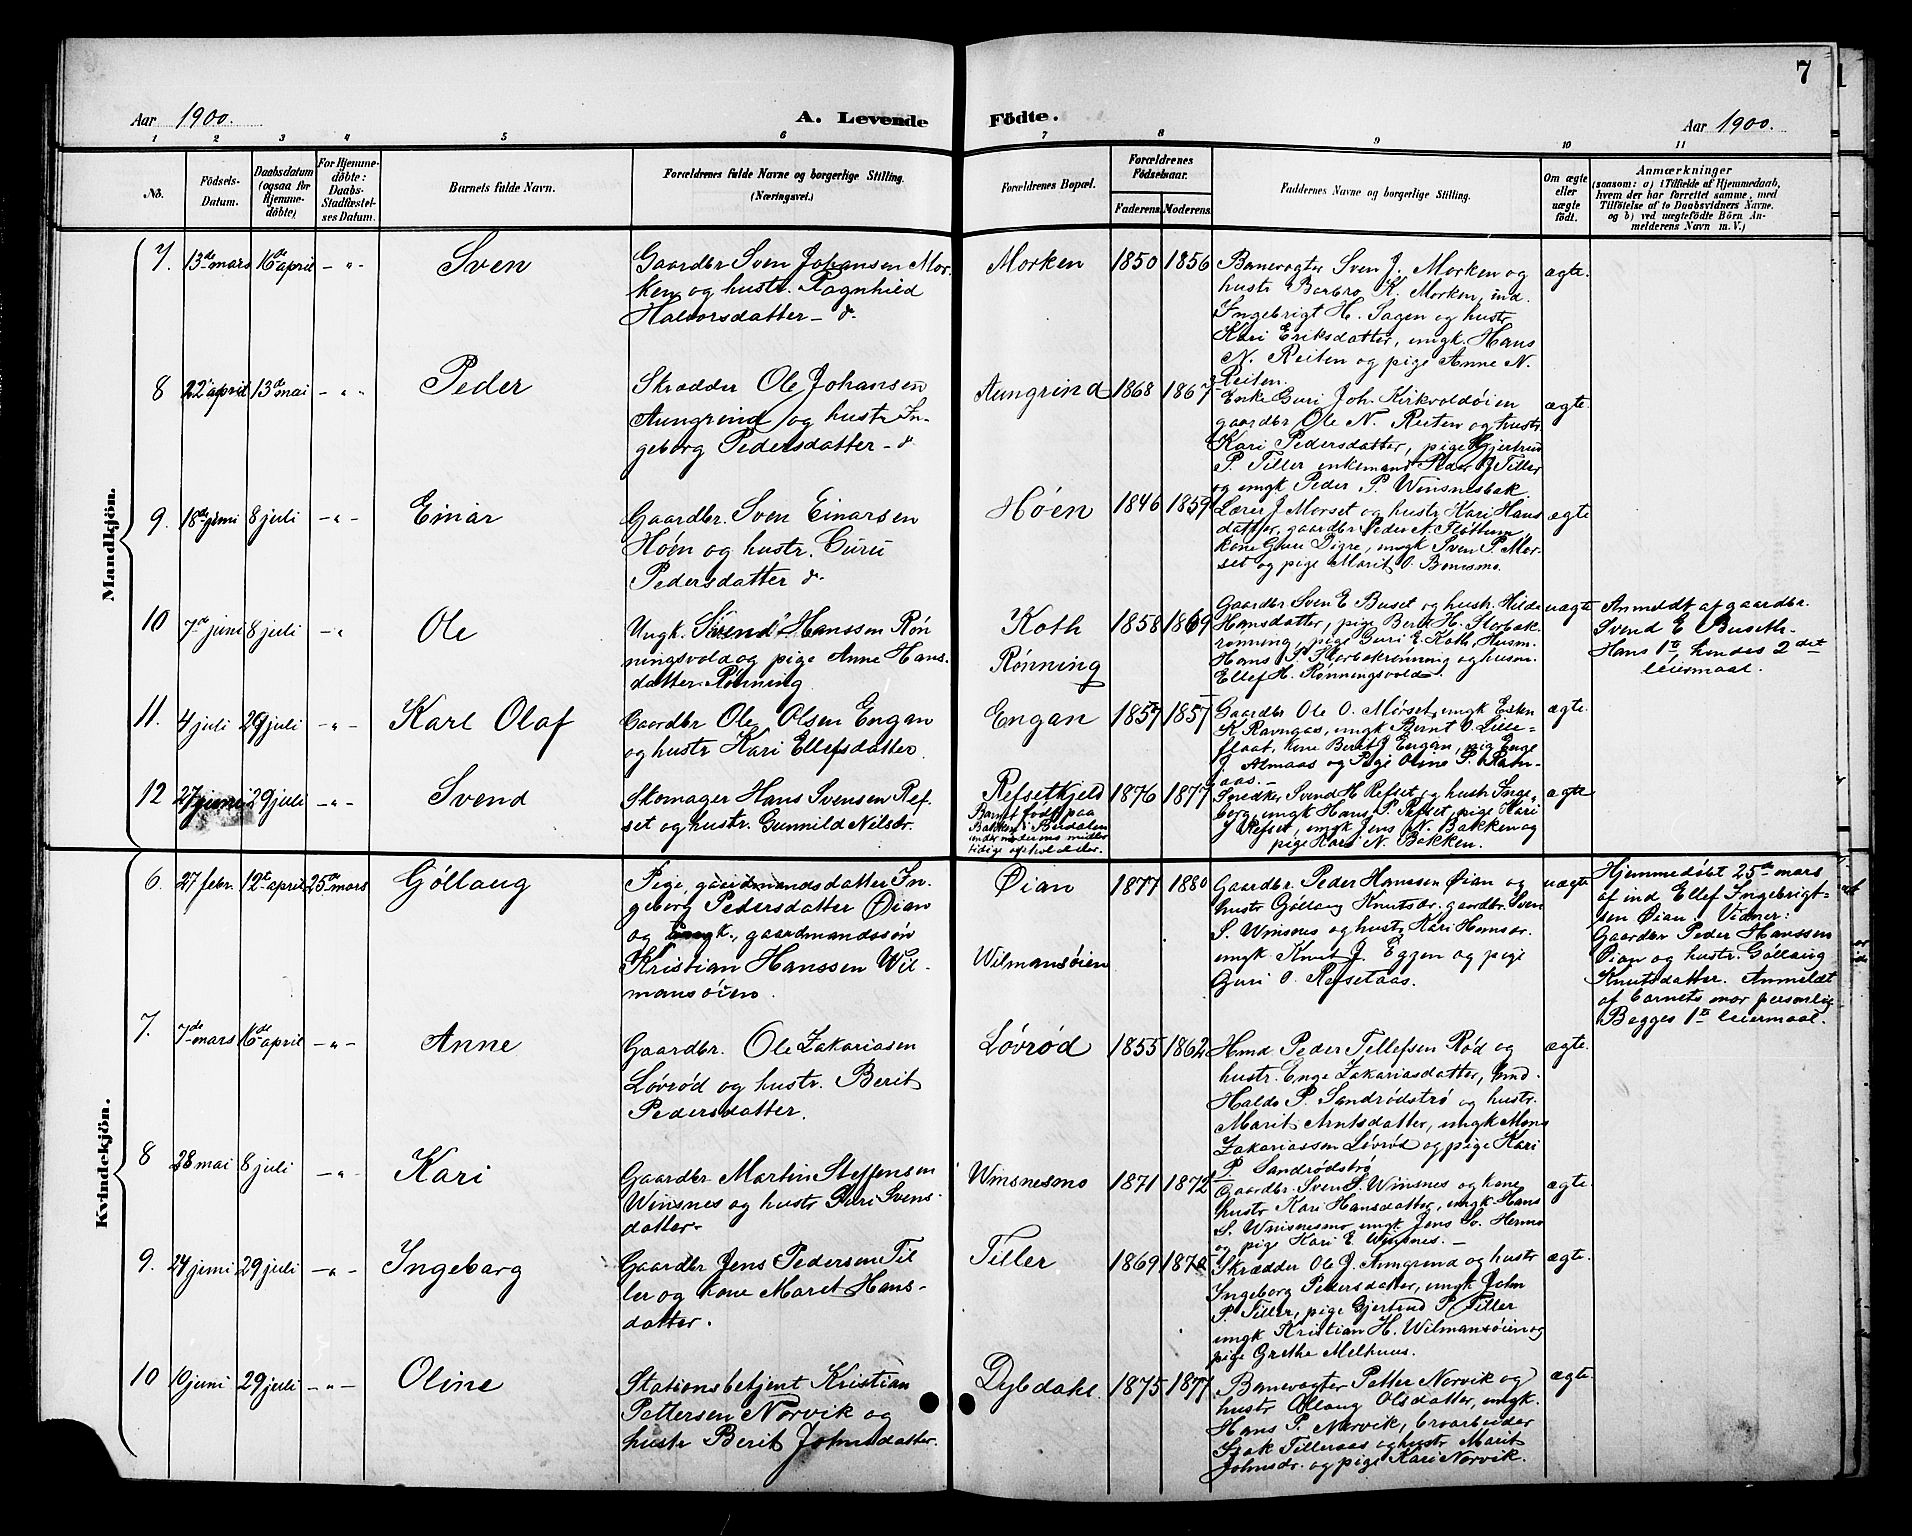 7
Aar 1900.
A. Levende Födte.
Aar 1900.
1 2 3 4 5 6 7 8 9 10 11
No.
Födsels-
Datum.
Daabsdatum
(ogsaa for
Hjemme-
döbte)
For Hjemme-
döbte:
Daabs-
Stadfæstel-
ses Datum.
Barnets fulde Navn.
Forældrenes fulde Navne og borgerlige Stilling.
(Næringsvei.)
Forældrenes Bopæl.
Forældrenes
Födselsaar.
Faderens. Moderens.
Faddernes Navne og borgerlige Stilling.
Om ægte
eller
uægte
födt.
Anmærkninger
(saasom: a) i Tilfælde af Hjemmedaab,
hvem der har forrettet samme, med
Tilföielse af to Daabsvidners Navne.
og b) ved uægtefödte Börn An-
melderens Navn m. V.)
Mandkjön.
7. 13de mars 16de april - " - Sven
Gaardbr Sven Johansen Mor-
ken og hustr. Ragnhild
Halvorsdatter - d.
Morken 1850 1856
Banevogter Sven J. Morken og
hustr Barbro K. Morken, ind.
Ingebrigt H. Sagen og hustr
Kari Eriksdatter, ungk. Hans
N. Reiten og pige Anne N.
Reiten.
ægte.
8 22 april 13de mai - " - Peder
Skrædder Ole Johansen
Aungrind og hustr In-
geborg Pedersdatter - d
Aungrind 1868 1867
Enke Guri Joh. Kirkvoldöien
gaardbr Ole N. Reiten og hustr
Kari Pedersdatter, pige Gjertrud
P. Tiller enkemand Peder J. Tiller
og ungk Peder P. Winsnesbak.
ægte.
9. 18de juni 8 juli - " - Einar
Gaardbr. Sven Einarsen
Höen og hustr. Guru
Pedersdatter d.
Höen 1846 1859
Lærer J Morset og hustr Kari Hans
datter, gaardbr Peder N. Flöttum
kone Guru Digre, ungk Sven P. Mor-
set og pige Marit O. Bonesmo.
ægte
10 7de juni 8 juli - " Ole
Ungk. "Svend" Hanssen Rön
ningsvold og pige Anne Hans-
datter Rönning
Koth
Rönning
1858 1869
Gaardbr Sven E Buset og hustr. Hilde
Hansdatter, pige Berit H. Storbak
rönning, pige Guri E. Koth, Husm.
Hans P. Storbakrönning og husm.
Ellef H. Rönningsvold.
uægte
Anmeldt af gaardbr.
Svend E Buseth.
Hans 1te, hendes 2det
leiermaal.
11. 4 juli 29 juli - " - Karl Olaf
Gaardbr Ole Olsen Engan
og hustr Kari Ellefsdatter
Engan 1857 1857
Gaardbr Ole O. Morset, ungk Esten
K Ravngas, ungk Bernt O. Lille-
flaat, kone Berit J Engan, pige Enge
J. Almaas og Pige Oline P. Ram-
aas. -
ægte.
12 27 juni 29 juli - " - Svend
Skomager Hans Svensen Ref-
set og hustr. Gunnild Nilsdr.
Refsetkjeld
Barnet född paa
Bakken i Budalen
under moderens midler
tidige ophold der.
1876 1877
Snedker Svend H Refset og hustr Inge-
borg, ungk Hans P. Refset, pige Kari
J Refset, ungk Jens N. Bakken og
pige Kari N. Bakken.
ægte
Kvindekjön.
6. 27 febr. 12te april 25de mars Göllaug
Pige, gaardmandsdatter In-
geborg Pedersdatter Öian
og ungk., gaardmandssön
Kristian Hanssen Wil-
mansöien.
Öian
Wilmansöien
1877 1880
Gaardbr. Peder Hanssen Öian og
hustr Göllaug Knutsdr. gaardbr. Sven
S. Winsnes og hustr. Kari Hansdr.
ungk Knut J. Eggen og pige
Guri O. Refsetaas.
uægte
Hjemmedöbt 25de mars
af ind Ellef Ingebrigt-
sen Öian. Vidner:
Gaardbr Peder Hanssen
Öian og hustr. Göllaug
Knutsdatter. Anmeldt
af barnets mor personlig
Begges 1te leiermaal.
7. 7de mars 16de april - " - Anne
Gaardbr. Ole Zakariasen
Lövröd og hustr. Berit
Pedersdatter.
Lövröd 1855 1862
Hmd. Peder Tellefsen Röd og
hustr. Enge Zakariasdatter, hmd.
Haldo P. Sandrödströ og hustr.
Marit Arntsdatter, ungk Mons
Zakariassen Lövröd og pige Kari
P. Sandrödströ
ægte.
8 28 mai 8 juli - " - Kari
Gaardbr Martin Steffensen
Winsnes og hustr Guri Svens-
datter.
Winsnesmo 1871 1872
Gaardbr. Sven S. Winsnes og kone
hustr Kari Hansdatter, ungk Hans
S. Winsnesmo, ungk Jens Sv. Hermo
og pige Kari E. Winsnes. -
ægte.
9. 24 juni 29 juli - " - Ingeborg
Gaardbr Jens Pedersen Til
ler og kone Maret Hans-
datter.
Tiller 1869 1870
Skrædder Ole J. Aungrind og hustr
Ingeborg Pedersdatter, ungk John
P. Tiller, pige Gjertrud P. Tiller
ungk Kristian H. Wilmansöien og
pige Grethe Melhuus.
ægte.
10 10 juni 29 juli - " - Oline
Stationsbetjent Kristian
Pettersen Norvik og
hustr Berit Johnsdatter.
Dybdahl 1875 1877
Banevogter Petter Norvik og
hustr Ollaug Olsdatter, ungk.
Hans P. Norvik, broarbeider
Isak Tilleraas og hustr Marit
Johnsdr. og pige Kari Norvik.
ægte.